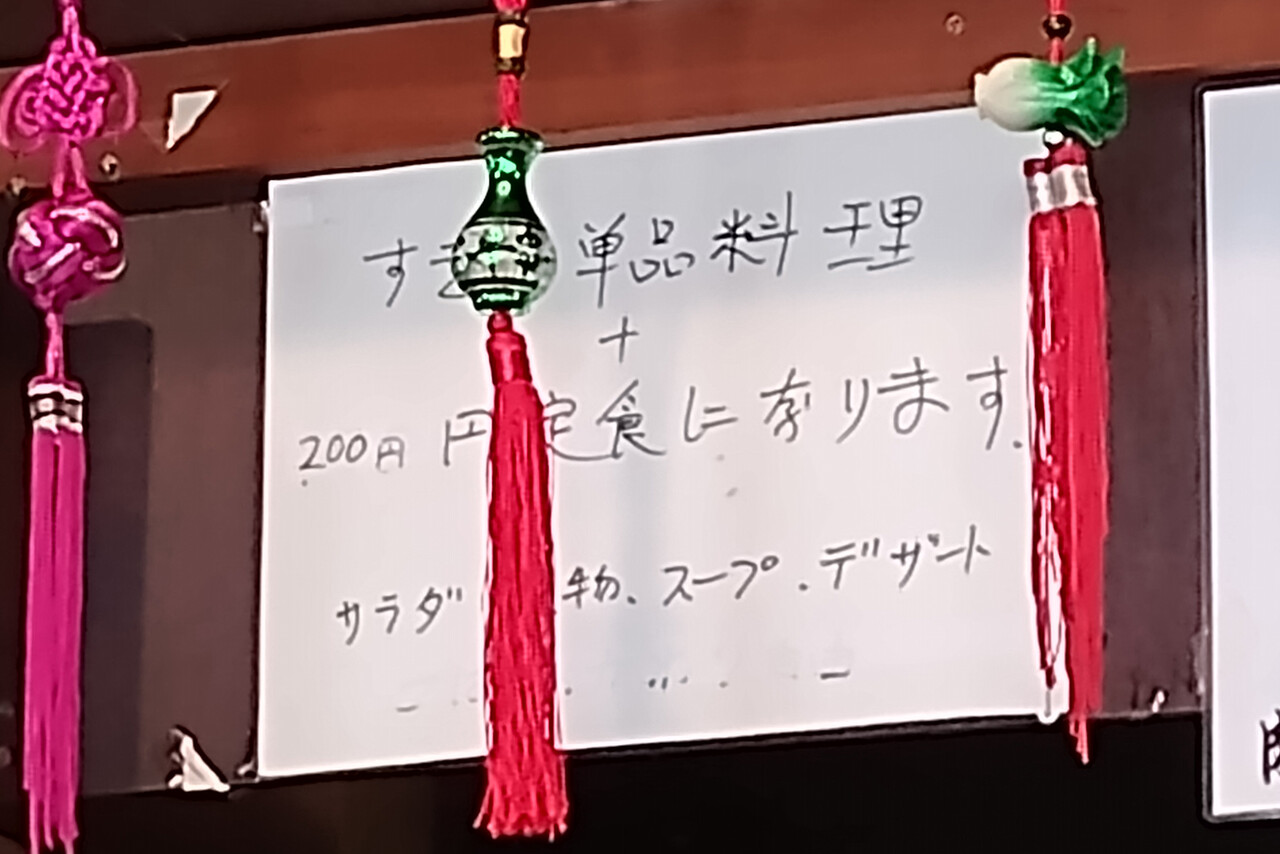 す 単品料理
+
200円 円定食になります.
サラダ 物、スープ.デザート